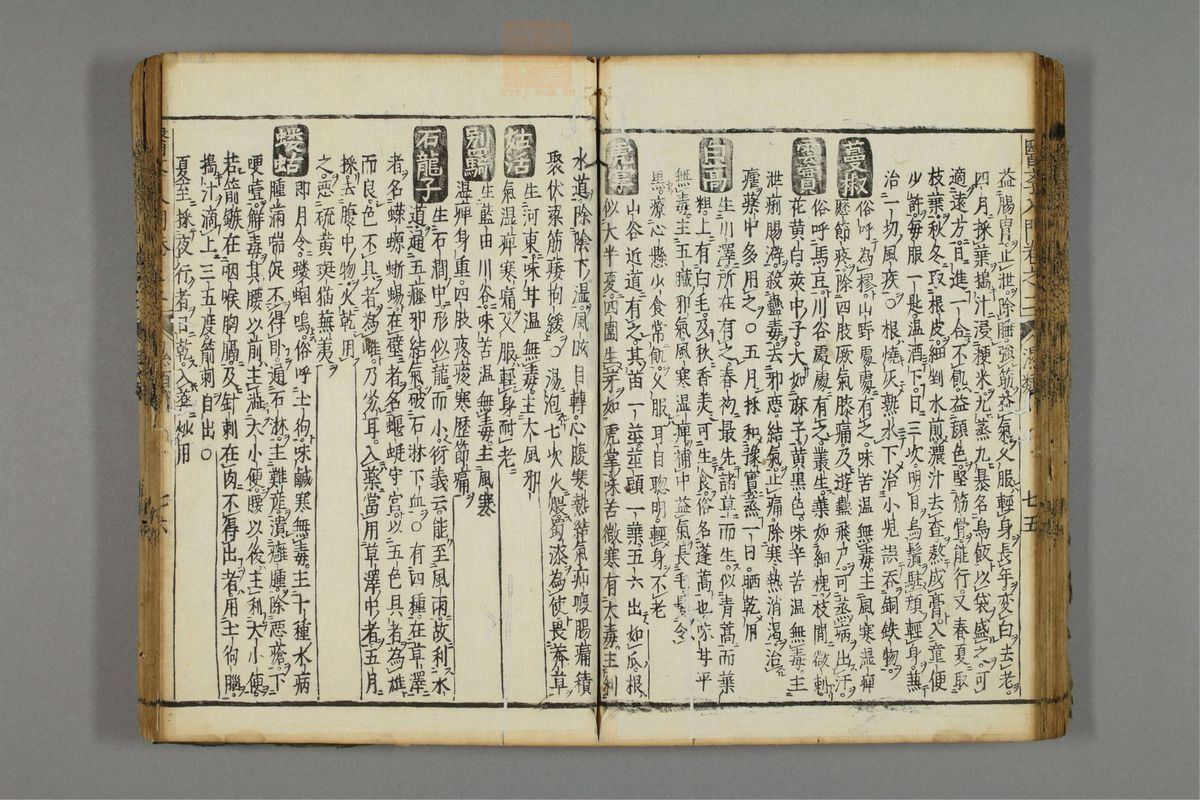 益腸胃止泄除睡強筋益氣久服輕身長年変白去老
四月採葉搗汁浸粳米九蒸九暴名烏飯以袋盛之可
適遠方日進一合不飢益顔色堅筋骨能行又春夏取
枝葉秋冬取根皮細剉水煎濃汁去査熬成膏入童便
少許毎服一匙温酒下日三次明目烏鬚駐顔輕身兼
治一切風疾○根燒灰熟水下治小児誤呑銅鉄物
蔓椒
俗呼為樛山野處處有之味苦温無毒主風寒湿痺
歷節疼除四肢厥氣膝痛乃遊蠱飛尸可蒸病出汗
雲實
俗呼馬豆川谷處處有之叢生葉如細槐枝間微刺
花黄白莢中子大如麻子黄黒色味辛苦温無毒主
泄痢腸澼殺蠱毒去邪悪結氣止痛除寒熱消渇治
瘧藥中多用之○五月採和漿實蒸一日晒乾用
白蒿
生川澤所在有之春初最先諸草而生似青蒿而葉
粗上有白毛及秋香美可生食俗名蓬蒿也味甘平
無毒主五臟邪氣風寒温痺補中益氣長毛髮令
黒療心懸少食常飢久服耳目聡明輕身不老
山谷近道有之其苗一莖莖頭一葉五六出如瓜根
似大半夏四圍生牙如虎掌味苦微寒有大毒主利
水道除陰下湿風眩目轉心腹寒熱結氣疝瘕腸痛積
聚伏梁筋痿拘緩○湯泡七次火煨蜀漆為使畏莽草
姑活
生河東味甘温無毒主大風邪
氣湿痺寒痛久服輕身耐老
別羇
生藍田川谷味苦温無毒主風寒
湿痺身重四肢疼痠寒歷節痛
石龍子
生石澗中形似龍而小衍義云能至風雨故利水
道通五癃邪結氣破石淋下血○有四種在草澤
者名蠑螈蜥蜴在壁者名蝘蜓守宮以五色具者為雄
而良色不具者為雌乃劣耳入薬當用草澤中者五月
採去腹中物火乾用
之悪硫黄斑猫蕪荑
螻蛄
即月令螻蟈鳴俗呼土狗味鹹寒無毒主十種水病
腫満喘促不得臥通石淋主難産潰癰腫除悪瘡下
哽噎解毒其腰以前主澁大小便腰以後主利大小便
若箭鏃在咽喉胸膈及針刺在肉不得出者用土狗腦
搗汁滴上三五度箭刺自出○
夏至採夜行者日乾入薬炒用
七五
七六